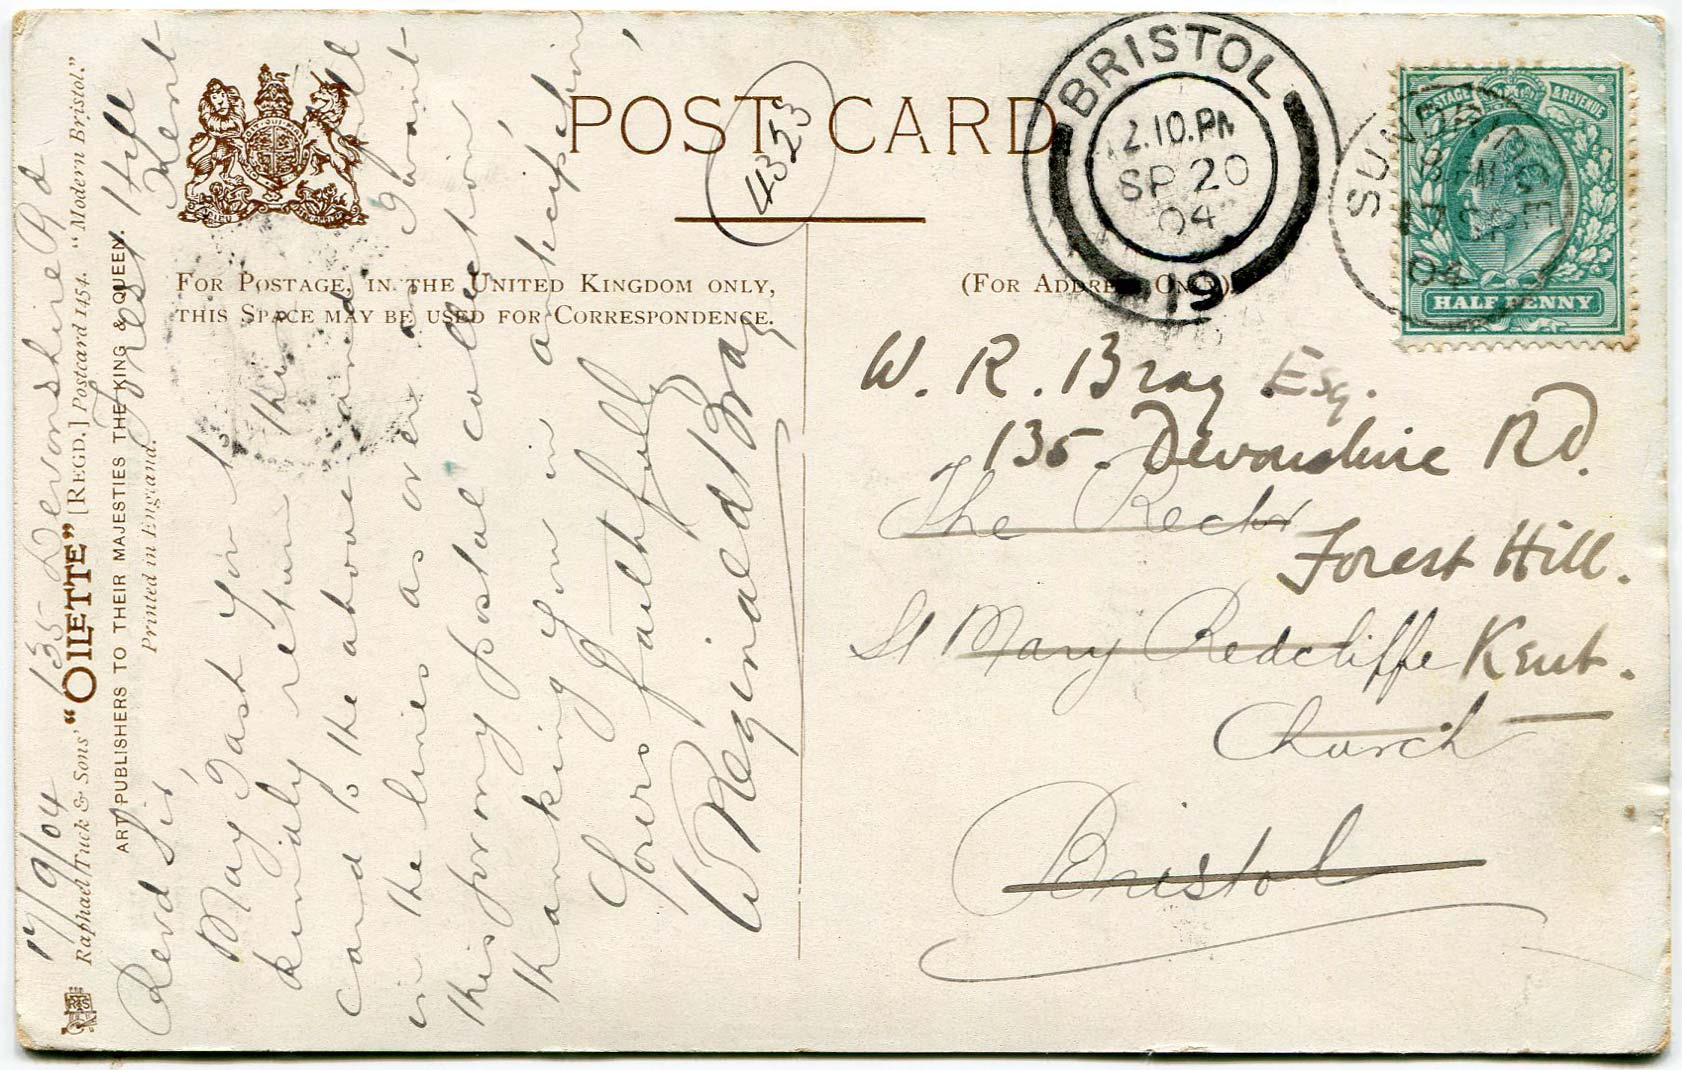 POST CARD
4323
FOR POSTAGE, IN THE UNITED KINGDOM ONLY,
THIS SPACE MAY BE USED FOR CORRESPONDENCE.
(FOR ADDRESS ONLY)
BRISTOL
2.10.PM
SP 20
04
19
SUNDRIDGE
17 SP
04
POSTAGE & REVENUE
HALF PENNY
W. R. Bray Esq.
135. Devonshire Rd.
The Rector
Forest Hill.
St Mary Redcliffe Kent.
Church
Bristol
17/9/04 135 Devonshire Rd
Raphael Tuck & Sons' "OILETTE" [REGD.] Postcard 1454. "Modern Bristol."
ART PUBLISHERS TO THEIR MAJESTIES THE KING & QUEEN.
Printed in England.
Forest Hill
Kent
Revd Sir,
May I ask you to
kindly return this
card to the above and fill
in the lines as over as I want
this for my postal collection,
thanking you in anticipation,
Yours faithfully
W Reginald Bray